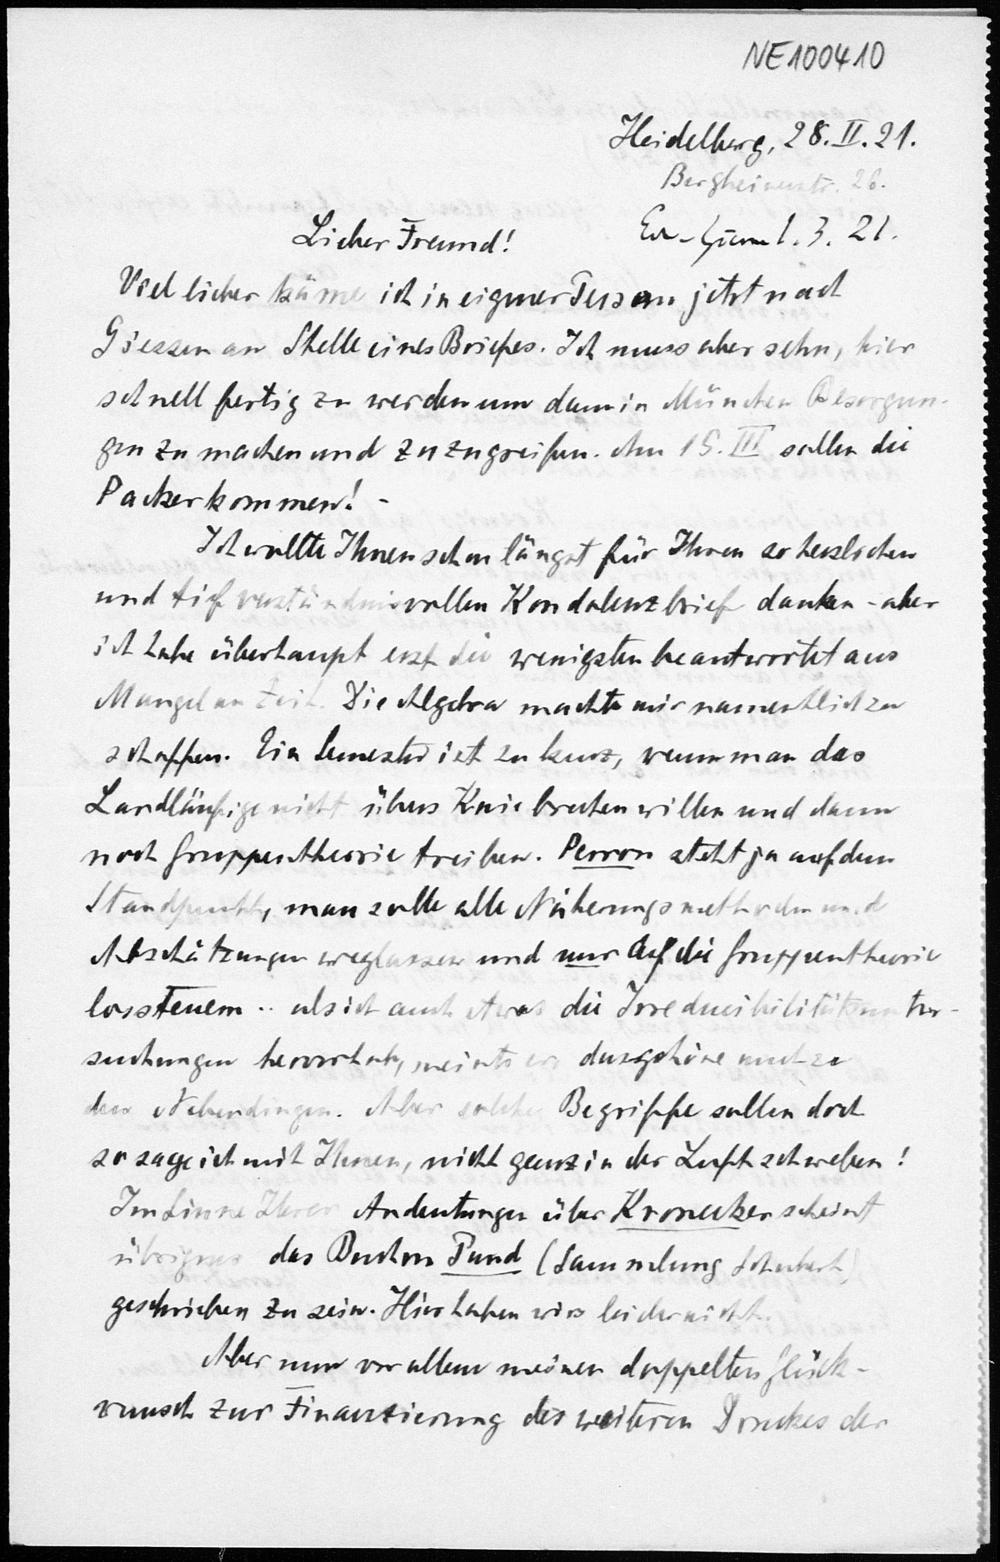 NE100410
Heidelberg, 28. II. 21.
Bergheimerstr. 26.
Lieber Freund!
1. 3. 21.
Viel lieber käme ich in eigner Person jetzt nach
Giessen an Stelle eines Briefes. Ich muss aber sehn, hier
schnell fertig zu werden um dann in München Besorgun-
gen zu machen und zuzugreifen. Am 15. III sollen die
Packer kommen! -
Ich wollte Ihnen schon längst für Ihren so herzlichen
und tief verständnisvollen Kondolenzbrief danken - aber
ich habe überhaupt erst die wenigsten beantwortet aus
Mangel an Zeit. Die Algebra machte mir namentlich zu
schaffen. Ein Semester ist zu kurz, wenn man das
Landläufige nicht übers Knie brechen willen und dann
noch Gruppentheorie treiben. Perron steht ja auf dem
Standpunkt, man solle alle Näherungsmethoden und
Abschätzungen weglassen und nur auf die Gruppentheorie
lossteuern .. als ich auch etwas die Irreducibilitätsunter-
suchungen hervorhob, meinte er, das gehöre auch zu
den Nebendingen. Aber solche Begriffe sollen doch
so sage ich mit Ihnen, nicht ganz in der Luft schweben!
Im Sinne Ihrer Andeutungen über Kronecker scheint
übrigens das Buch von Pund (Sammlung Schubert)
geschrieben zu sein. Hier haben wirs leider nicht.
Aber nun vor allem meinen doppelten Glück-
wunsch zur Finanzierung des weiteren Druckes der